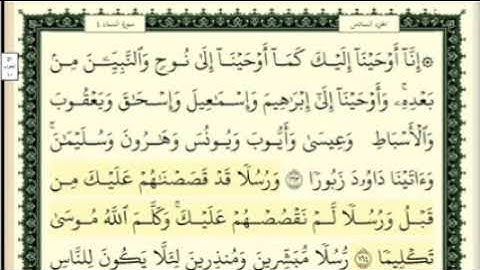 الجزء السادس سورة النساء ٤
۞ إِنَّآ أَوْحَيْنَآ إِلَيْكَ كَمَآ أَوْحَيْنَآ إِلَىٰ نُوحٍ وَٱلنَّبِيِّـۧنَ مِنۢ
بَعْدِهِۦۚ وَأَوْحَيْنَآ إِلَىٰٓ إِبْرَٰهِيمَ وَإِسْمَـٰعِيلَ وَإِسْحَـٰقَ وَيَعْقُوبَ
وَٱلْأَسْبَاطِ وَعِيسَىٰ وَأَيُّوبَ وَيُونُسَ وَهَـٰرُونَ وَسُلَيْمَـٰنَۚ
وَءَاتَيْنَا دَاوُۥدَ زَبُورًا ١٦٣ وَرُسُلًا قَدْ قَصَصْنَـٰهُمْ عَلَيْكَ مِن
قَبْلُ وَرُسُلًا لَّمْ نَقْصُصْهُمْ عَلَيْكَۚ وَكَلَّمَ ٱللَّهُ مُوسَىٰ
تَكْلِيمًا ١٦٤ رُّسُلًا مُّبَشِّرِينَ وَمُنذِرِينَ لِئَلَّا يَكُونَ لِلنَّاسِ